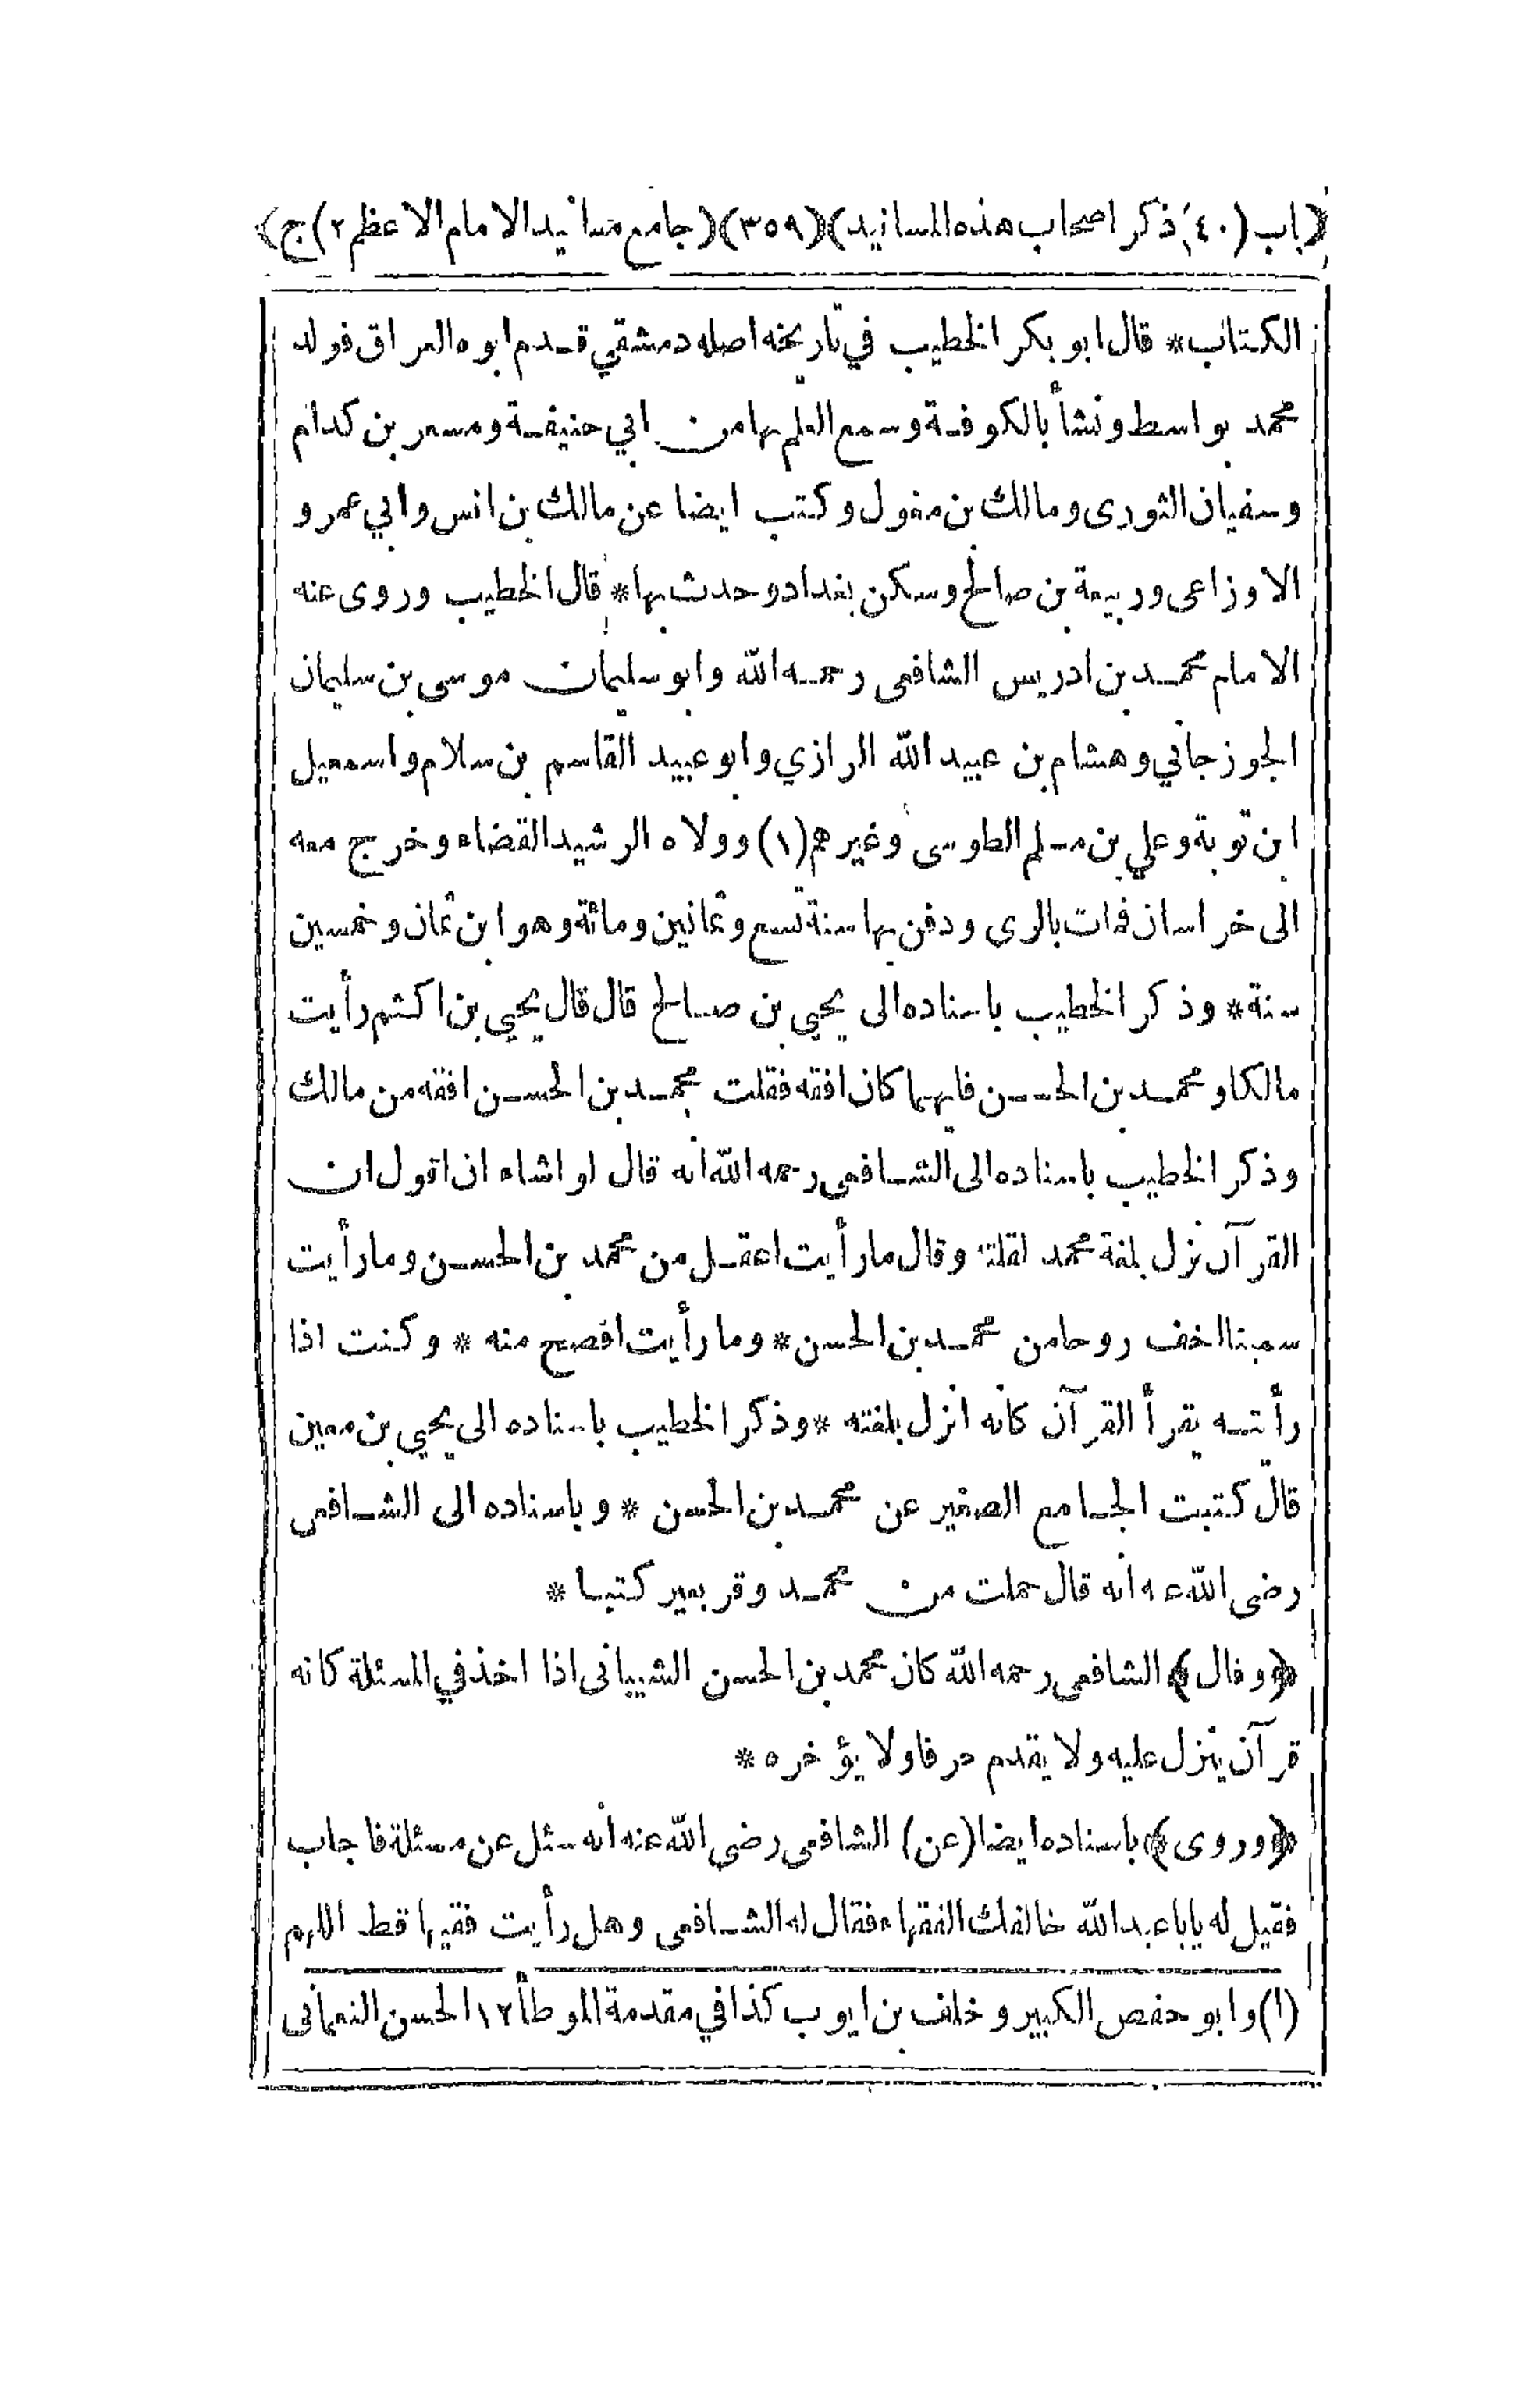 ﴿باب (٤٠) ذكر اصحاب هذه المسانيد﴾(٣٥٩)﴿جامع مسانيد الامام الاعظم ٢) ج﴾
الكتاب* قال ابو بكر الخطيب في تاريخه اصله دمشقي قدم ابوه العراق فولد
محمد بواسط ونشأ بالكوفة وسمع العلم بها من ابي حنيفة ومسعر بن كدام
وسفيان الثورى ومالك بن مغول وكتب ايضا عن مالك بن انس وابي عمرو
الاوزاعى وربيعة بن صالح وسكن بغداد وحدث بها* قال الخطيب وروى عنه
الامام محمد بن ادريس الشافعى رحمه الله وابو سليمان موسى بن سليمان
الجوزجاني وهشام بن عبيد الله الرازي وابو عبيد القاسم بن سلام واسمعيل
ابن توبة وعلي بن مسلم الطوسى وغيرهم(١) وولاه الرشيد القضاء وخرج معه
الى خراسان فمات بالري ودفن بها سنة تسع وثمانين ومائة وهو ابن ثمان وخمسين
سنة* وذكر الخطيب باسناده الى يحيى بن صالح قال قال يحيى بن اكثم رأيت
مالكا ومحمد بن الحسن فايهما كان افقه فقلت محمد بن الحسن افقه من مالك
وذكر الخطيب باسناده الى الشافعى رحمه الله انه قال لو اشاء ان اقول ان
القرآن نزل بلغة محمد لقلته وقال ما رأيت اعقل من محمد بن الحسن وما رأيت
سمينا اخف روحا من محمد بن الحسن* وما رأيت افصح منه * وكنت اذا
رأيته يقرأ القرآن كانه انزل بلغته *وذكر الخطيب باسناده الى يحيي بن معين
قال كتبت الجامع الصغير عن محمد بن الحسن * وباسناده الى الشافعى
رضى الله عنه انه قال حملت من محمد وقر بعير كتبا *
﴿وقال﴾ الشافعى رحمه الله كان محمد بن الحسن الشيبانى اذا اخذ في المسئلة كانه
قرآن ينزل عليه ولا يقدم حرفا ولا يؤخره *
﴿وروى﴾ باسناده ايضا (عن) الشافعى رضى الله عنه انه سئل عن مسئلة فاجاب
فقيل له يابا عبد الله خالفك الفقهاء فقال له الشافعى وهل رأيت فقيها قط اللهم
(١) وابو حفص الكبير وخلف بن ايوب كذا في مقدمة الموطأ ١٢ الحسن النعمانى